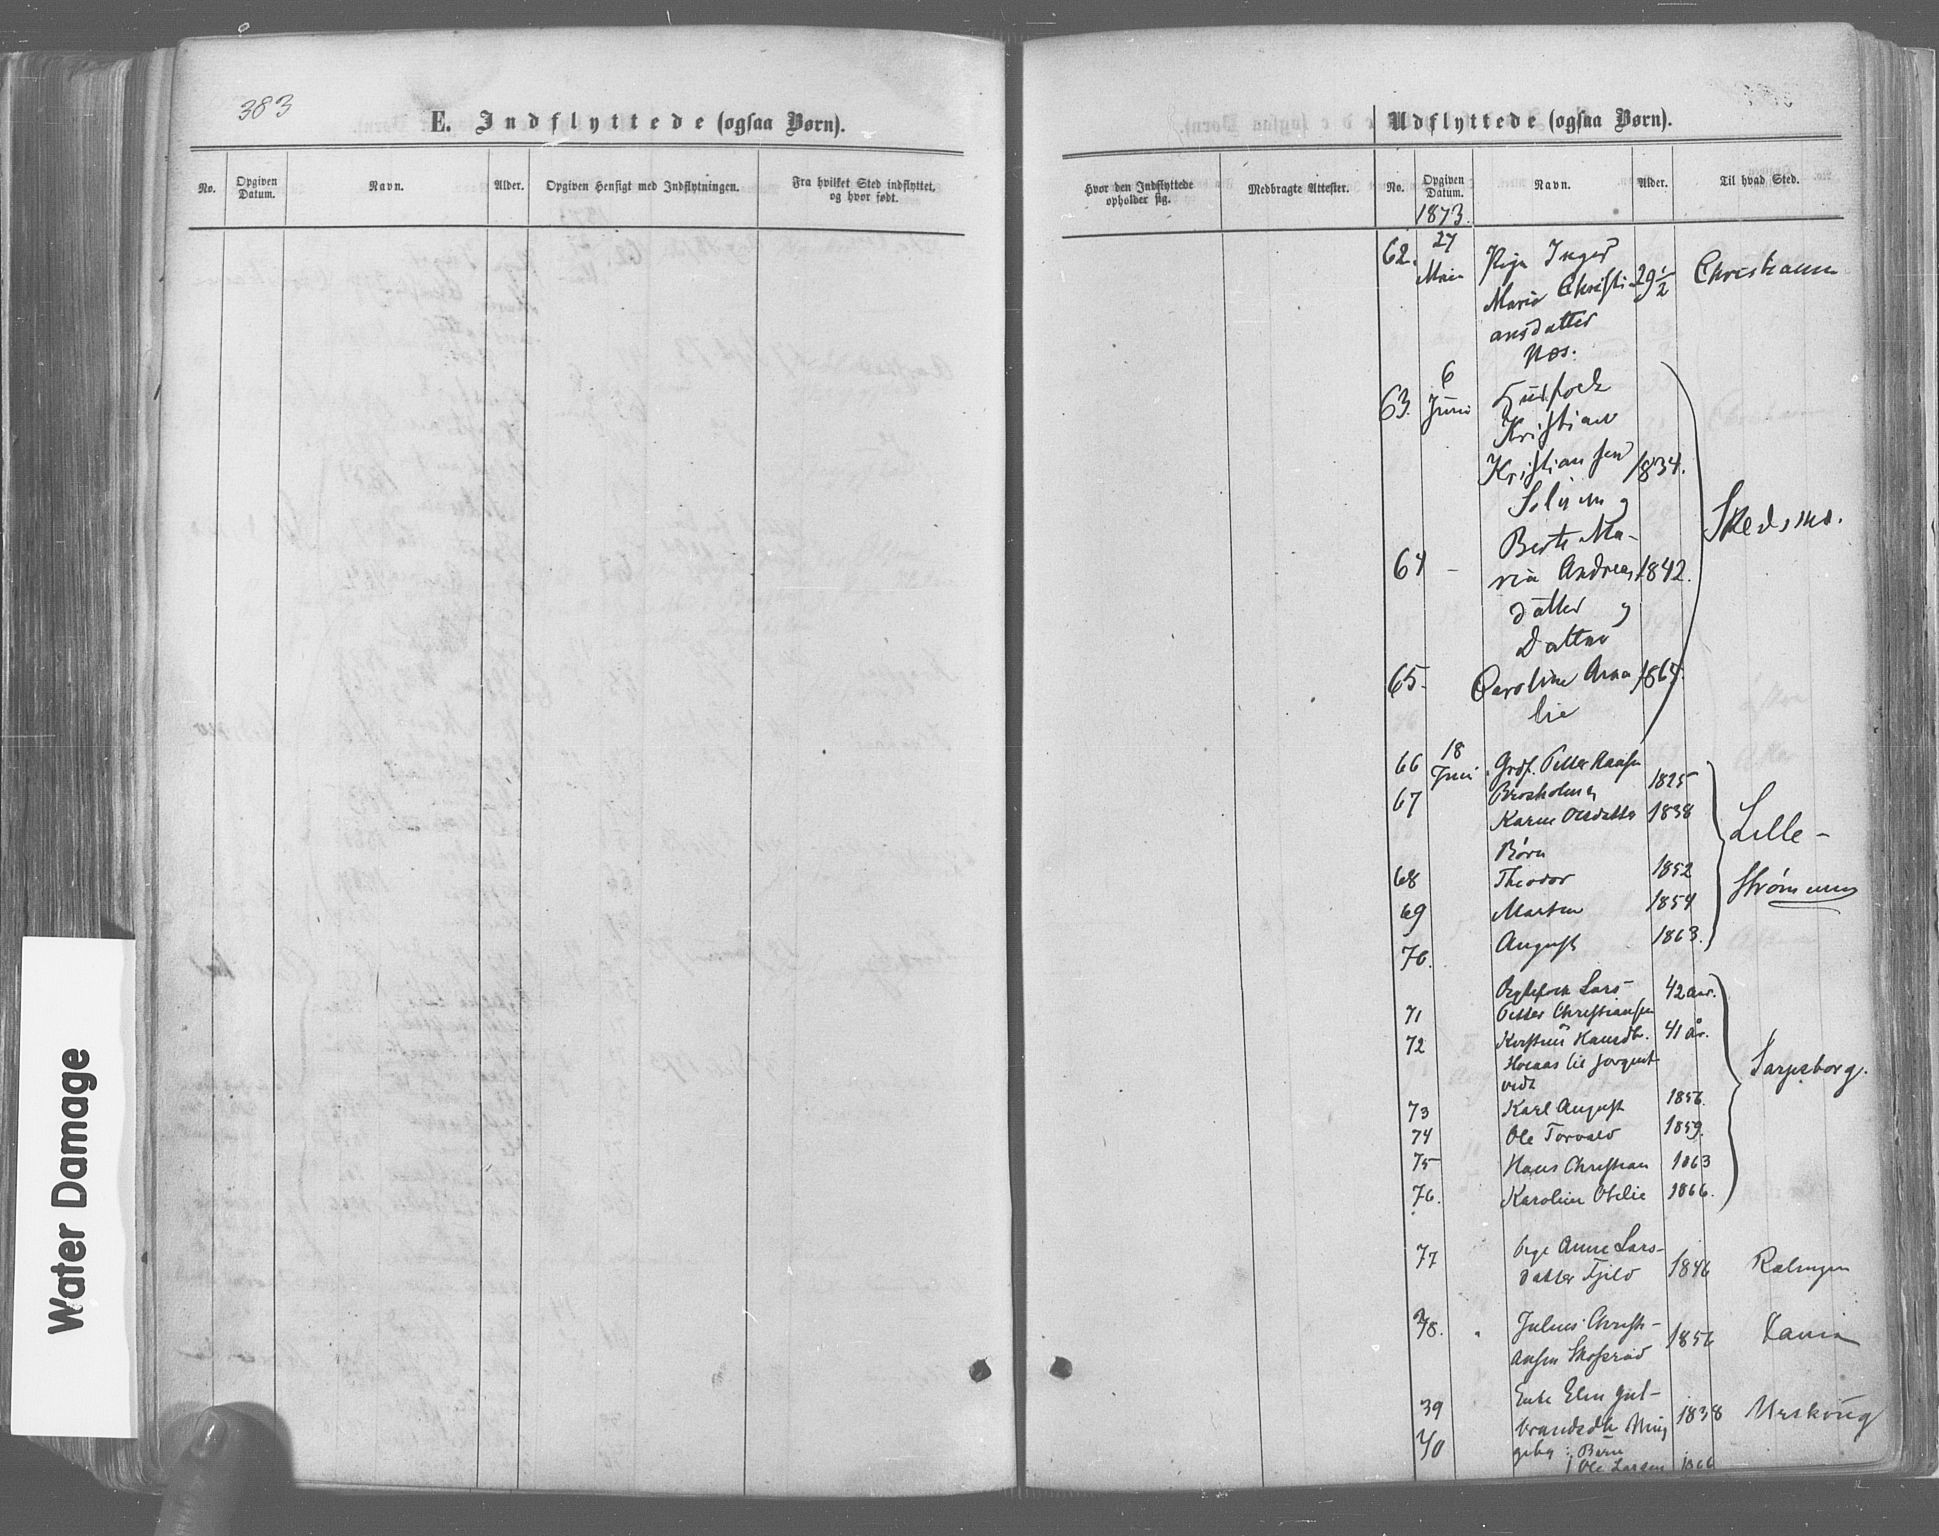 383
E. Indflyttede (ogsaa Børn).
No.
Opgiven Datum.
Navn.
Alder.
Opgiven Hensigt med Indflytningen.
Fra hvilket Sted indflyttet, og hvor født.
Udflyttede (ogsaa Børn).
Hvor den Indflyttede opholder sig.
Medbragte Attester.
No.
Opgiven Datum.
Navn.
Alder.
Til hvad Sted.
1873.
62. 27 Pige Inger
Mai Maria Christi 29 1/2 Christiania
ansdatter
Næs.
6
63. Juni Husfolk
Kristian
Kristiansen 1834.
Solum og
Berte Ma-
64 - ria Andreas 1842. Skedsmo.
datter og
Datter
65. Caroline Ama 1864.
lie
66 18 Juni Grdf. Petter Hansen 1825
67 Brosholm og
Karen Olsdatter 1838 Lille-
Børn
68 Theodor 1852 strømmen
69 Marten 1854
70. August 1863.
Lars 42 aar.
71 Petter Christiansen
72 Kirstine Hansdtr. 41 år.
Sarpsborg.
73 Karl August 1856.
74 Ole Torvald 1859.
75 Hans Christian 1863
76. Karoline Otilie 1866.
77 Pige Anne Lars-
datter Fjeld 1846 Rælingen
78. Julius Christi-
ansen 1856
39 Enke Elen Gul-
brandsdtr. 1838 Urskoug
40 Børn
1 Ole Larsen 1866
Water Damage